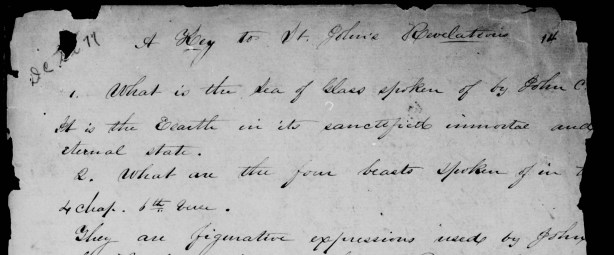 Sec 77
A Key to St. John's Revelations 14
1. What is the Sea of Glass spoken of by John C
It is the Earth in its sanctified immortal and
eternal state.
2. What are the four beasts spoken of in t
4 chap. 6th verse.
They are figurative expressions used by John